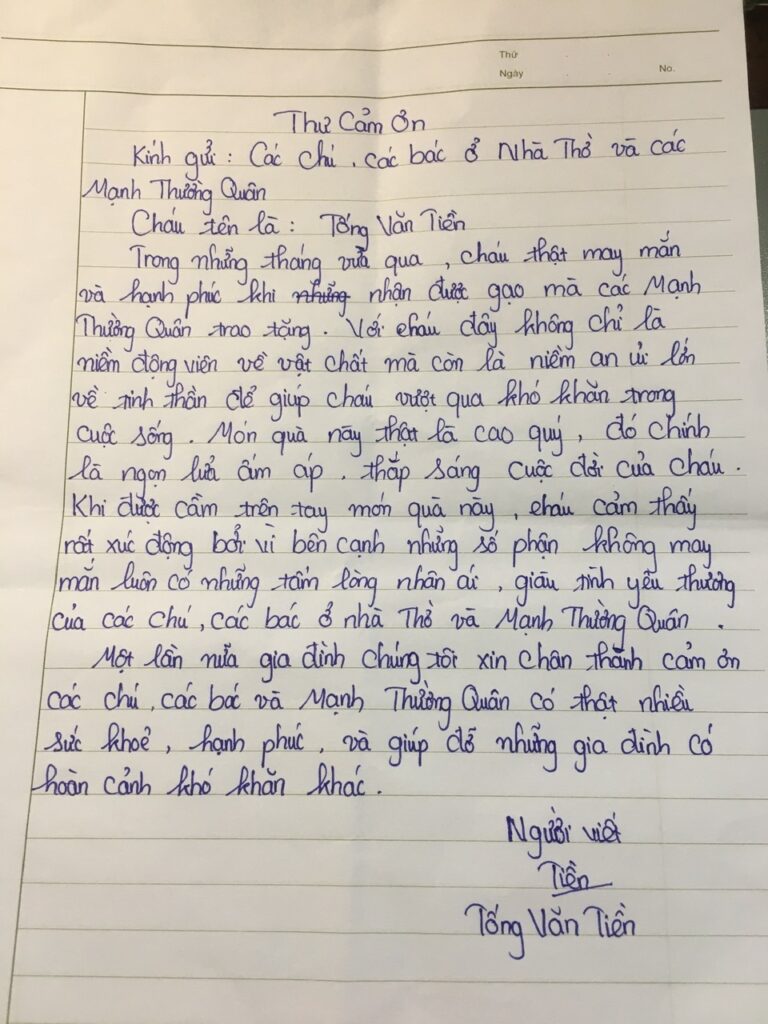 Thứ
Ngày
No.
Thư Cảm Ơn
Kính gửi : Các chú , các bác ở Nhà Thờ và các
Mạnh Thường Quân
Cháu tên là : Tống Văn Tiền
Trong những tháng vừa qua , cháu thật may mắn
và hạnh phúc khi những nhận được gạo mà các Mạnh
Thường Quân trao tặng . Với cháu đây không chỉ là
niềm động viên về vật chất mà còn là niềm an ủi lớn
về tinh thần để giúp cháu vượt qua khó khăn trong
cuộc sống . Món quà này thật là cao quý , đó chính
là ngọn lửa ấm áp . thắp sáng cuộc đời của cháu .
Khi được cầm trên tay món quà này , cháu cảm thấy
rất xúc động bởi vì bên cạnh những số phận không may
mắn luôn có những tấm lòng nhân ái , giàu tình yêu thương
của các chú , các bác ở nhà Thờ và Mạnh Thường Quân .
Một lần nữa gia đình chúng tôi xin chân thành cảm ơn
các chú , các bác và Mạnh Thường Quân có thật nhiều
sức khoẻ , hạnh phúc , và giúp đỡ những gia đình có
hoàn cảnh khó khăn khác .
Người viết
Tiền
Tống Văn Tiền